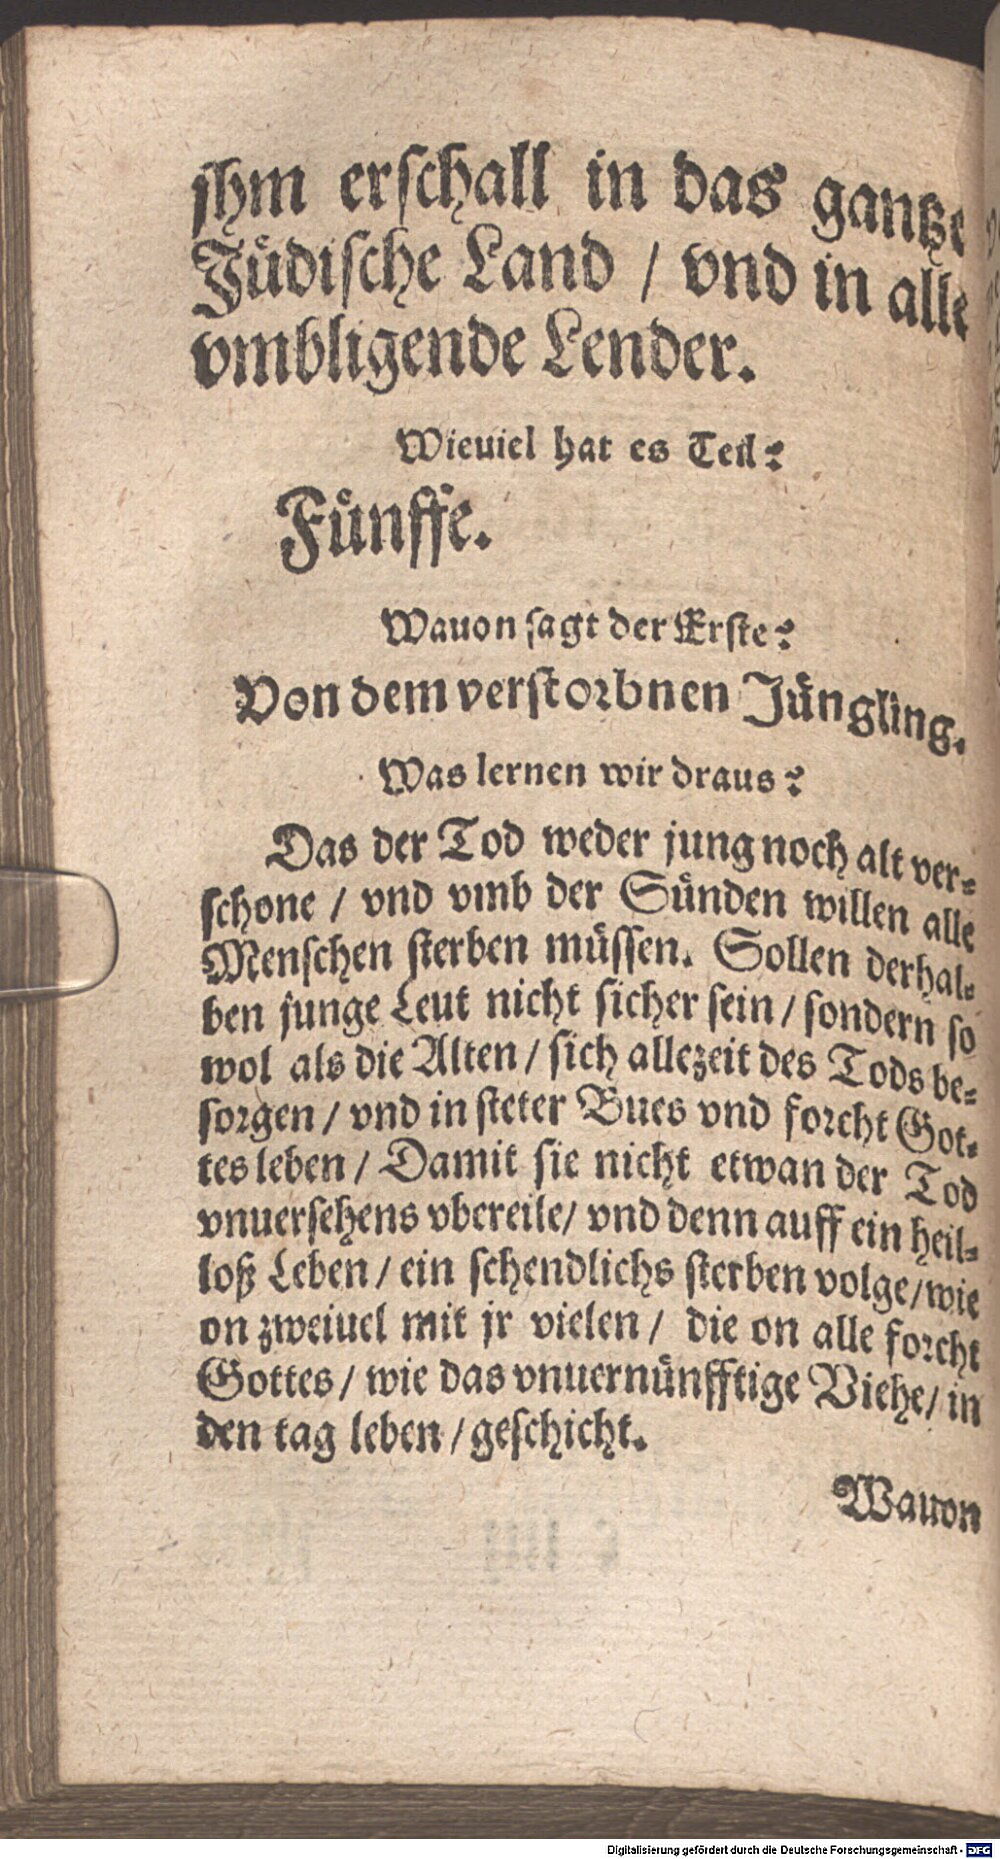 jhm erschall in das gantze
Jüdische Land / vnd in alle
vmbligende Lender.
Wieuiel hat es Teil?
Fünffe.
Wauon sagt der Erste?
Von dem verstorbnen Jüngling.
Was lernen wir draus?
Das der Tod weder jung noch alt ver-
schone / vnd vmb der Sünden willen alle
Menschen sterben müssen. Sollen derhal-
ben junge Leut nicht sicher sein / sondern so
wol als die Alten / sich allezeit des Tods be-
sorgen / vnd in steter Bues vnd forcht Got-
tes leben / Damit sie nicht etwan der Tod
vnuersehens vbereile / vnd denn auff ein heil-
loß Leben / ein schendlichs sterben volge / wie
on zweiuel mit jr vielen / die on alle forcht
Gottes / wie das vnuernünfftige Viehe / in
den tag leben / geschicht.
Wauon
Digitalisierung gefördert durch die Deutsche Forschungsgemeinschaft - DFG